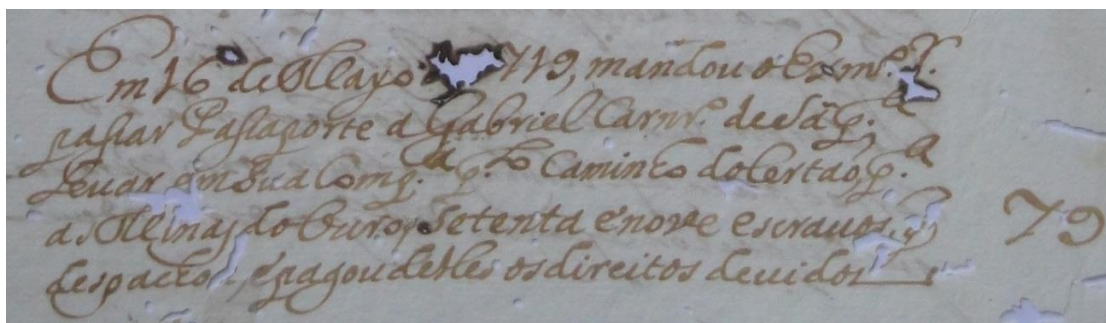 Em 16 de Mayo 719, mandou o Exmo. Sr.
pasar Pasaporte a Gabriel Carnro. de Sá pa.
Levar em sua Compa. plo Caminho do Certao pa.
as Minas do Ouro, setenta e nove escravos, q 79
despachou, e pagou delles os direitos devidos